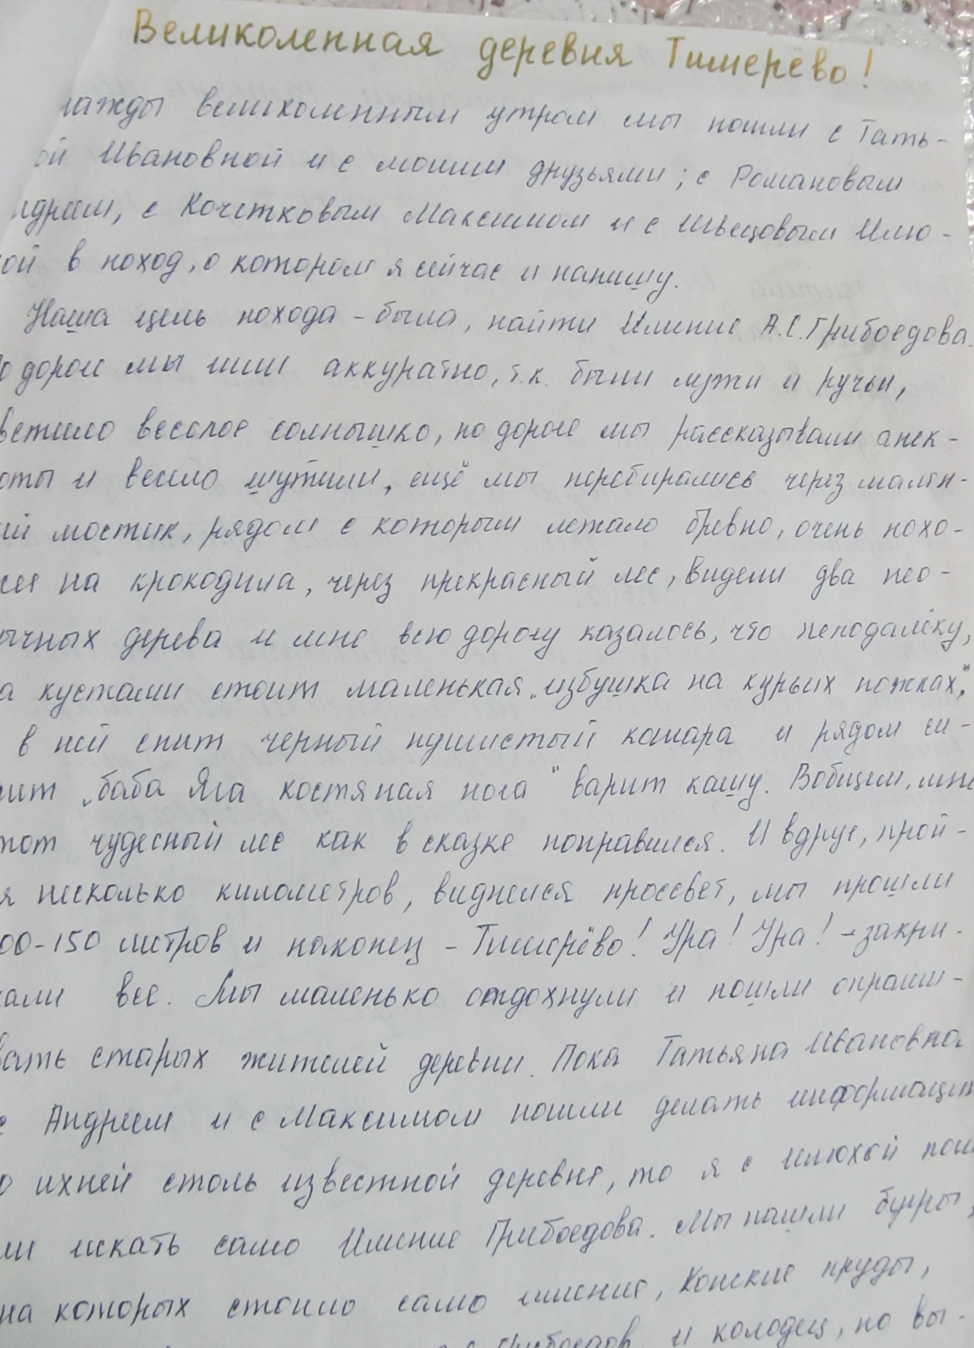 Великолепная деревня Тимерёво!
нажды великолепным утром мы пошли с Тать-
ой Ивановной и с моими друзьями; с Романовым
ндреем, с Кочетковым Максимом и с Швецовым Илю-
ой в поход, о котором я сейчас и напишу.
Наша цель похода - была, найти Имение А.С. Грибоедова.
о дороге мы шли аккуратно, т.к. были лужи и ручьи,
ветило веселое солнышко, по дороге мы рассказывали анек-
оты и весело шутили, ещё мы перебирались через малень-
ий мостик, рядом с которым летало бревно, очень похо-
ее на крокодила, через прекрасный лес, видели два нео-
ычных дерева и мне всю дорогу казалось, что неподалёку,
а кустами стоит маленькая „избушка на курьих ножках",
в ней спит черный пушистый кашара и рядом си-
ит „баба Яга костяная нога" варит кашу. Вобщем, мне
тот чудесный лес как в сказке понравился. И вдруг, прой-
я несколько километров, виднелся просвет, мы прошли
00-150 метров и наконец - Тимерёво! Ура! Ура! - закри-
али все. Мы маленько отдохнули и пошли опраши-
вать старых жителей деревни. Пока Татьяна Ивановна
с Андреем и с Максимом пошли делать информацию
о ихней столь известной деревне, то я с Илюхой пош
ли искать само Имение Грибоедова. Мы нашли бугры,
на которых стоило само имение, Конские пруды,
и колодец, но вы-